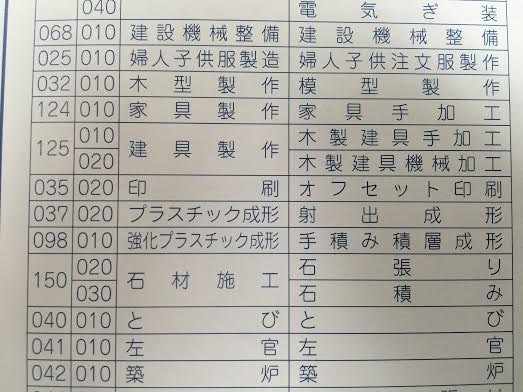 040 電気ぎ装
068 010 建設機械整備 建設機械整備
025 010 婦人子供服製造 婦人子供注文服製作
032 010 木型製作 模型製作
124 010 家具製作 家具手加工
125 010 建具製作 木製建具手加工
020 木製建具機械加工
035 020 印刷 オフセット印刷
037 020 プラスチック成形 射出成形
098 010 強化プラスチック成形 手積み積層成形
150 020 石材施工 石張り
030 石積み
040 010 とび とび
041 010 左官 左官
042 010 築炉 築炉